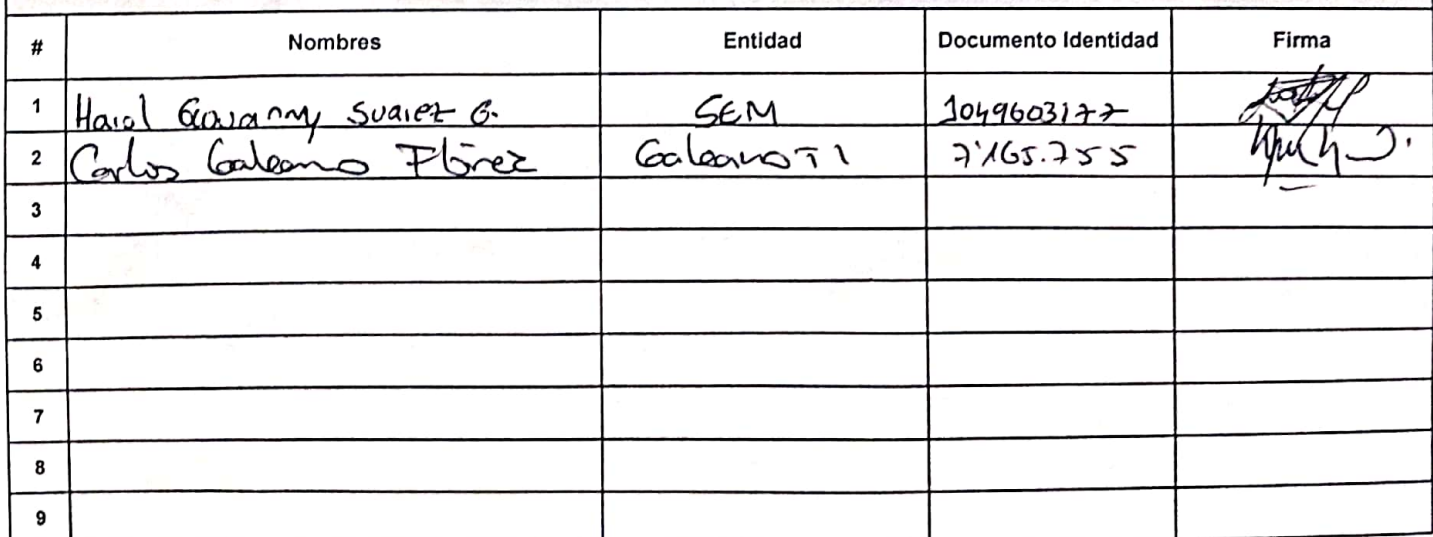 # Nombres Entidad Documento Identidad Firma
1 Harol Giovanny Suarez G. SEM 1049603177
2 Carlos Galeano Flórez Galeano TI 7'165.755
3
4
5
6
7
8
9